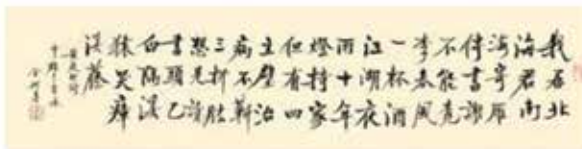 我居北
海君南
海寄雁
傳書謝
不能桃
李春風
一杯酒
江湖夜
雨十年
燈持家
但有四
立壁治
病不蘄
三折肱
想見讀
書頭已
白隔溪
猿哭瘴
溪藤